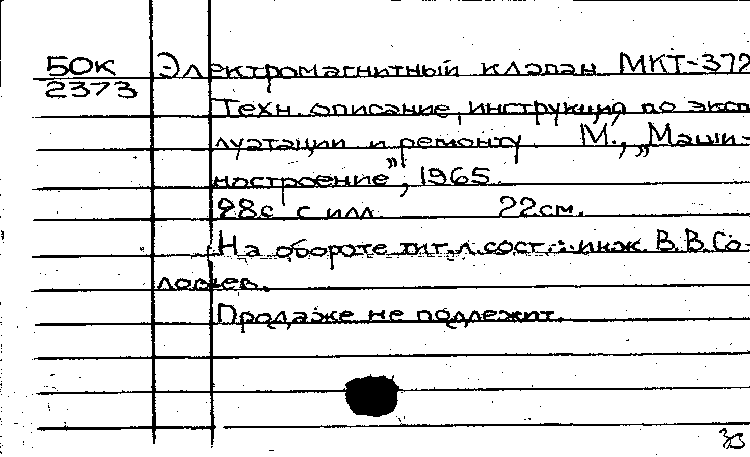 50К Электромагнитный клапан МКТ-372
2373
Техн. описание, инструкция по эксп
луатации и ремонту. М., „Маши-
ностроение", 1965.
28с. с илл. 22см.
На обороте тит. л. сост.: инж. В. В. Со-
ловьев.
Продаже не подлежит.